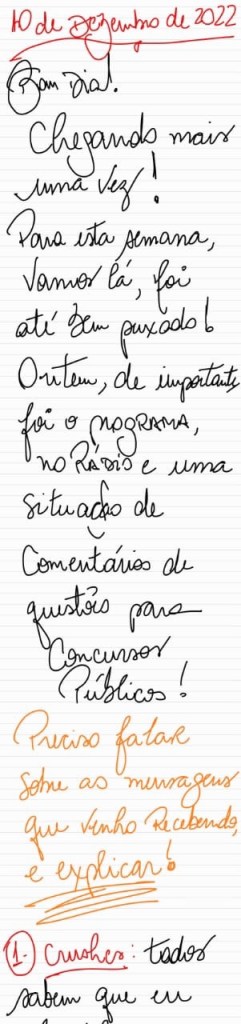 10 de Dezembro de 2022
Bom Dia!
Chegando mais
uma vez!
Para esta semana,
vamos lá, foi
até bem puxado!
Ontem, de importante,
foi o PROGRAMA,
NO RÁDIO e uma
situação de
Comentários de
questões para
Concursos
Públicos!
Preciso falar
sobre as mensagens
que venho Recebendo,
e explicar!
1- Crushes: todos
sabem que eu